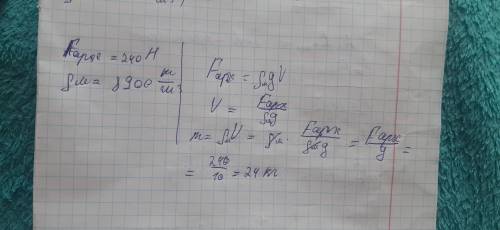 Fарх = 240 Н
ρм = 8900 m/м
Fарх = ρмgV
V = Fарх/ρмg
m = ρмV = ρм · Fарх/ρмg = Fарх/g =
= 240/10 = 24 кг